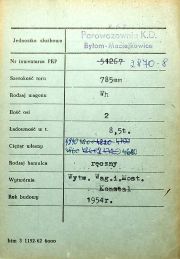 Jednostka służbowa
Parowozownia K.D.
Bytom-Maciejkowice
Nr inwentarza PKP 54267 2870-8
Szerokość toru 785mm
Rodzaj wagonu Wh
Ilość osi 2
Ładowność w t. 8,5t.
Ciężar własny 4210 4700
4680
Rodzaj hamulca ręczny
Wytwórnia Wytw. Wag.i.Most.
Konstal
Rok budowy 1954r.